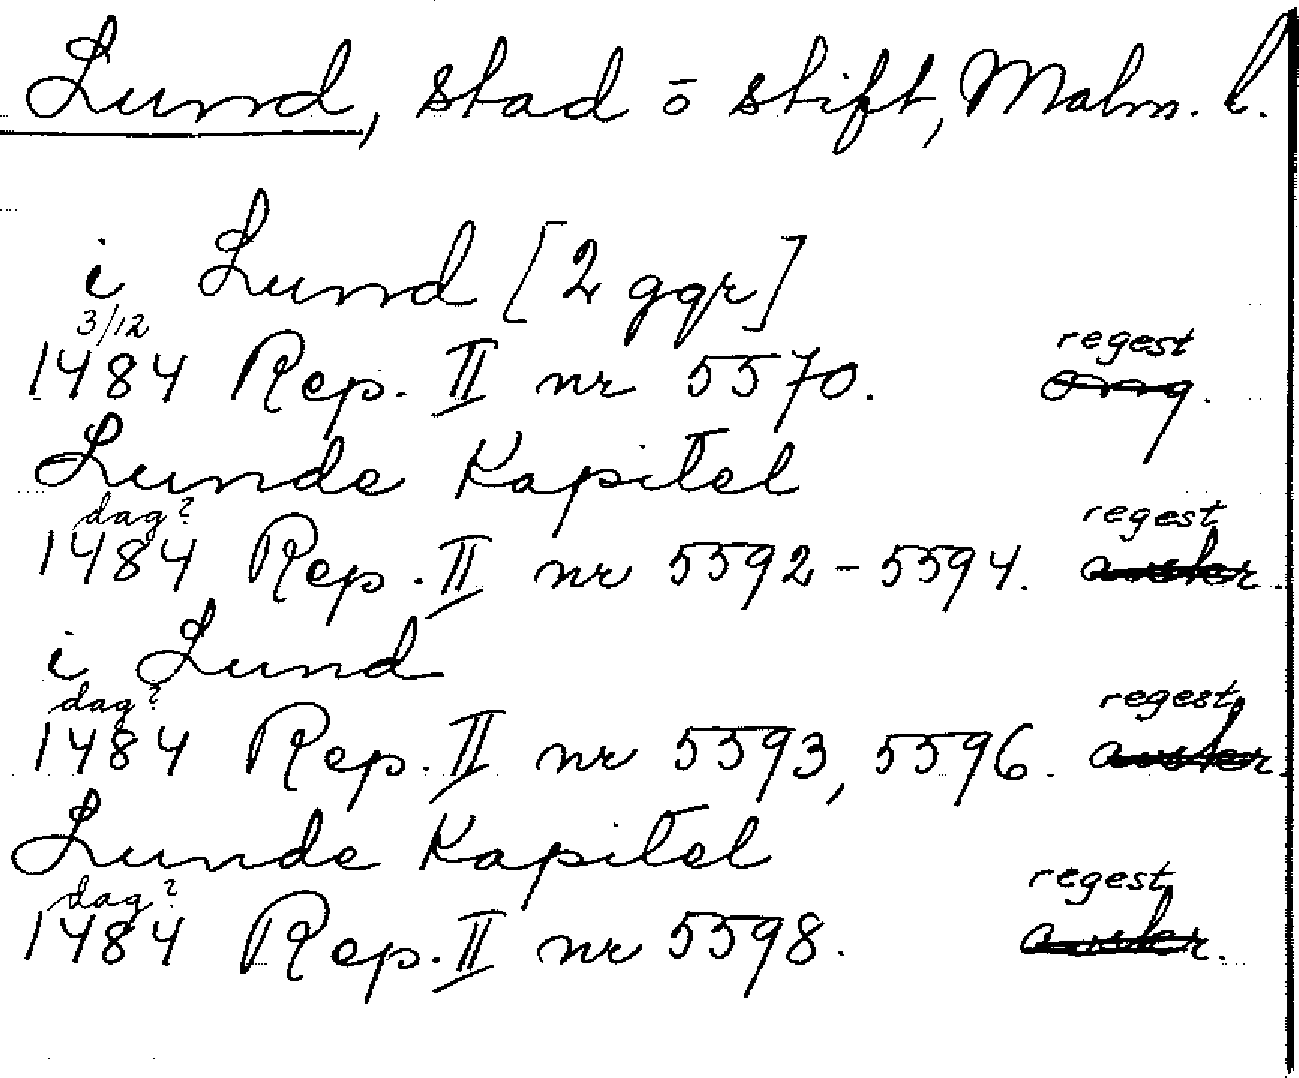 Lund, stad o stift, Malm. l.
i Lund [2 ggr]
3/12 regest
1484 Rep. II nr 5570. orig.
Lunde Kapitel
dag? regest
1484 Rep. II nr 5592-5594.
i Lund
dag? regest
1484 Rep. II nr 5593, 5596.
Lunde Kapitel
dag? regest
1484 Rep. II nr 5598.